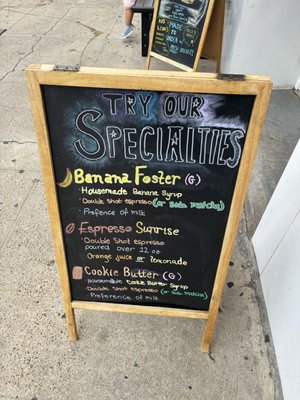 TRY OUR
SPECIALTIES
Banana Foster (G)
• Housemade Banana Syrup
• Double Shot espresso (or sub matcha)
• Prefence of milk
Espresso Sunrise
• Double Shot espresso
poured over 12 oz
Orange juice or lemonade
Cookie Butter (G)
Housemade Cookie Butter Syrup
• Double Shot espresso (or sub matcha)
• Preference of milk
MADE
TO
ORDER